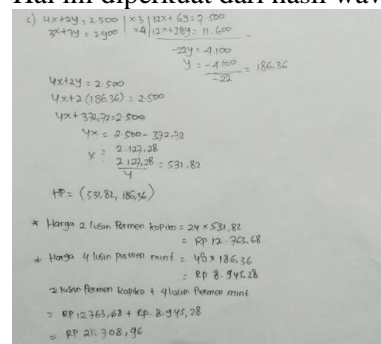 Hal ini diperkuat dari hasil waw
c) 4x+2y = 2.500 | x3 | 12x + 6y = 7.500
3x+7y = 2.900 | x4 | 12x+28y = 11.600
-22y = -4.100
y = -4.100 / -22 = 186,36
4x+2y = 2.500
4x+2 (186,36) = 2.500
4x+ 372,72 = 2.500
4x = 2.500 - 372,72
x = 2.127,28
2.127,28 / 4 = 531,82
HP = (531,82, 186,36)
* Harga 2 lusin Permen kopiko = 24 x 531,82
= RP 12.763,68
* Harga 4 lusin permen mint = 48 x 186,36
= Rp. 8.945,28
2 lusin Permen Kopiko + 4 lusin Permen mint
= RP 12.763,68 + Rp. 8.945,28
= RP 21.708,96